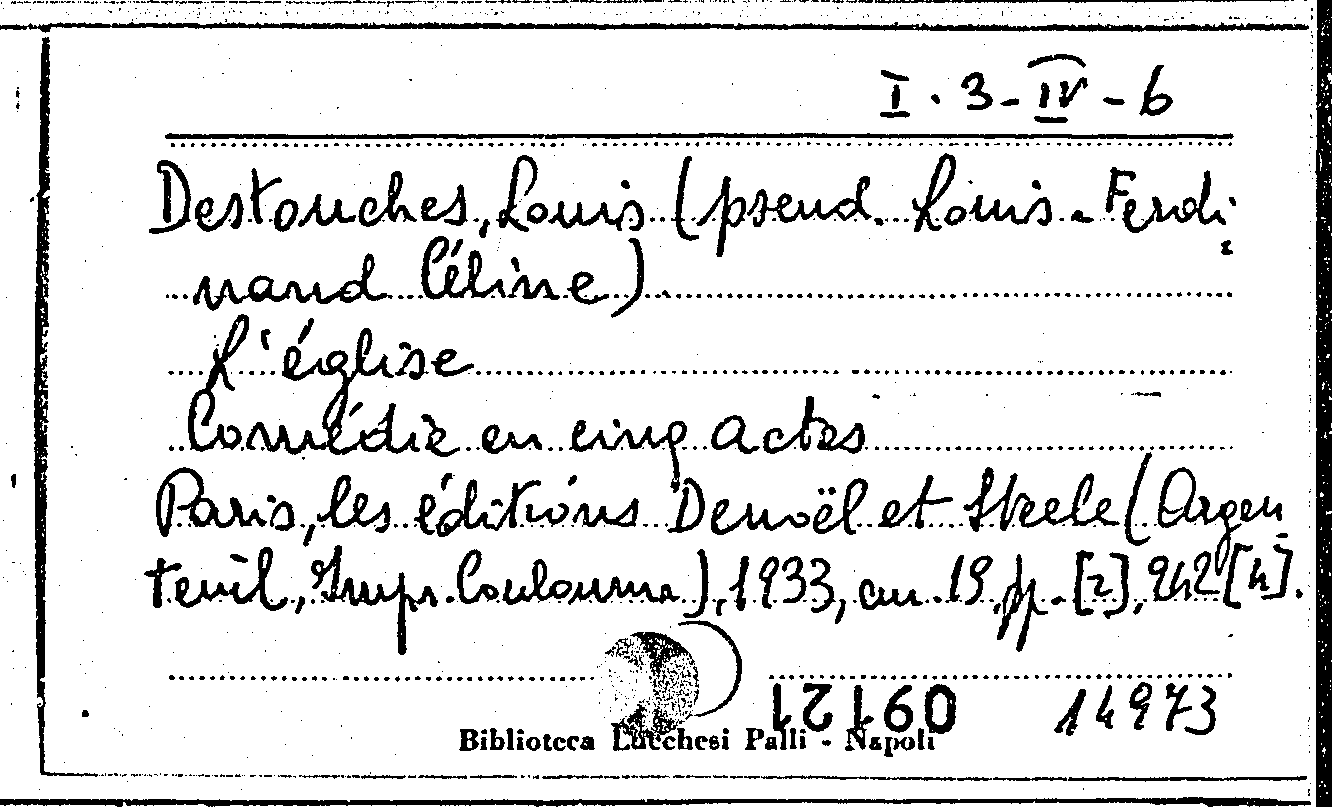 I. 3-IV-6
Destouches, Louis (pseud. Louis-Ferdi-
nand Céline).
L'église
Comédie en cinq actes
Paris, les éditions Denoël et Steele (Argen-
teuil, Impr. Coulouma), 1933, cm. 19, pp. [2], 242 [4].
09121 14973
Biblioteca Lucchesi Palli - Napoli